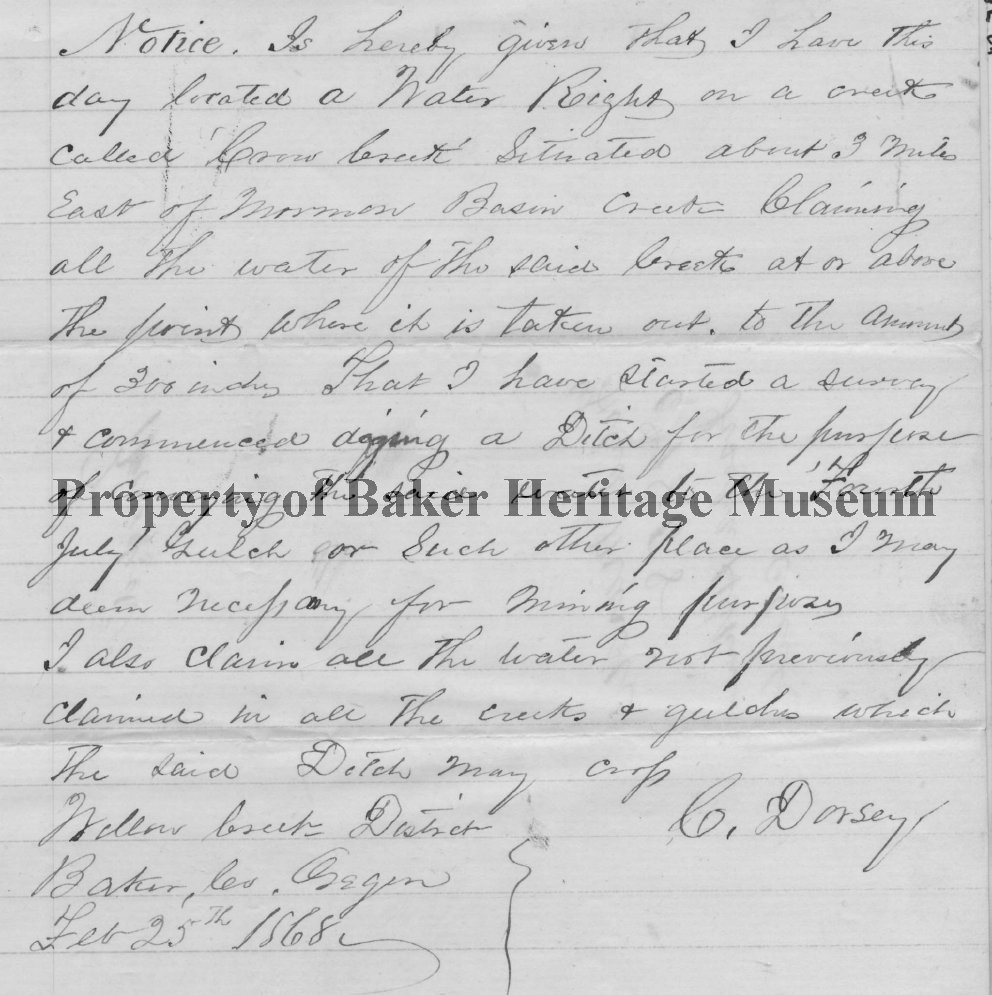 Notice. Is hereby given that I have this
day located a Water Right on a creek
called Crow Creek Situated about 3 Miles
East of Mormon Basin Creek Claiming
all the water of the said Creek at or above
the point where it is taken out. to the amount
of 300 inches That I have started a survey
& commenced diging a Ditch for the purpose
of conveying the said water to the Fourth
Property of Baker Heritage Museum
July Gulch or Such other place as I may
deem necessary for mining purposes
I also claim all the water not previously
claimed in all the creeks & gulches which
the said Ditch may cross
C. Dorsey
Willow Creek District
Baker, Co. Oregon
Feb 25th 1868